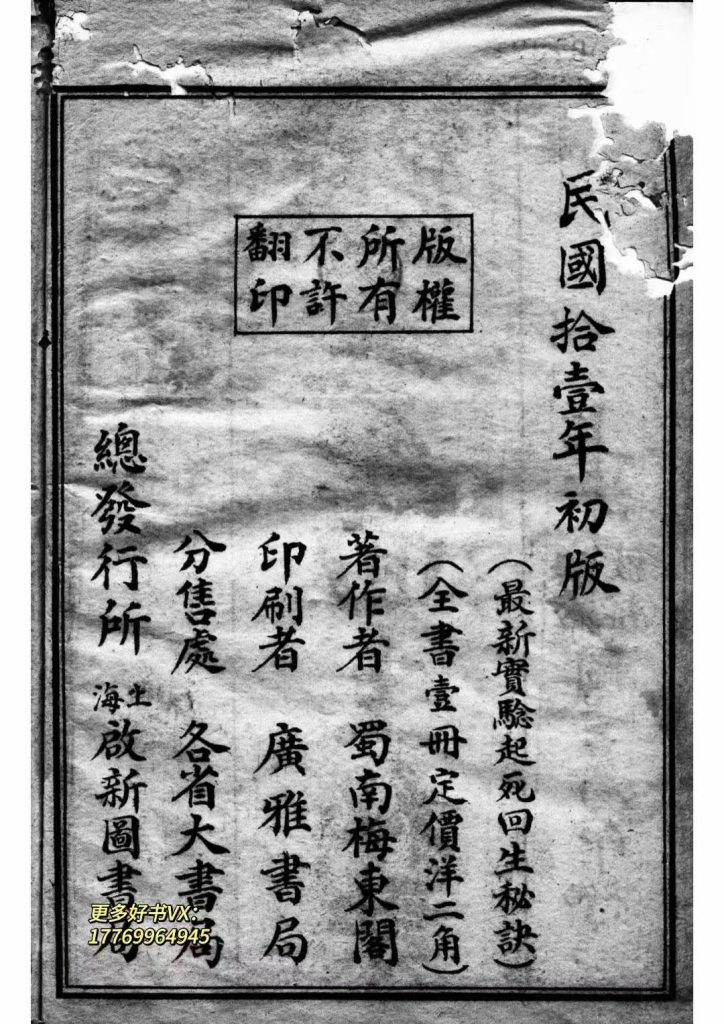 民國拾壹年初版
(最新實驗起死回生秘訣)
(全書壹冊定價洋二角)
版權
所有
不許
翻印
著作者 蜀南梅東閣
印刷者 廣雅書局
分售處 各省大書局
總發行所 上海啟新圖書局
更多好书VX:
17769964945